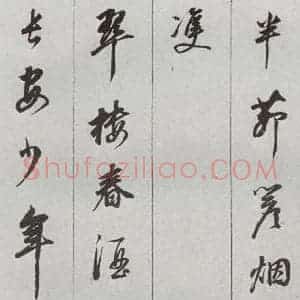 半茆烟
翠楼春酒
长安少年
Shufaziliao.com